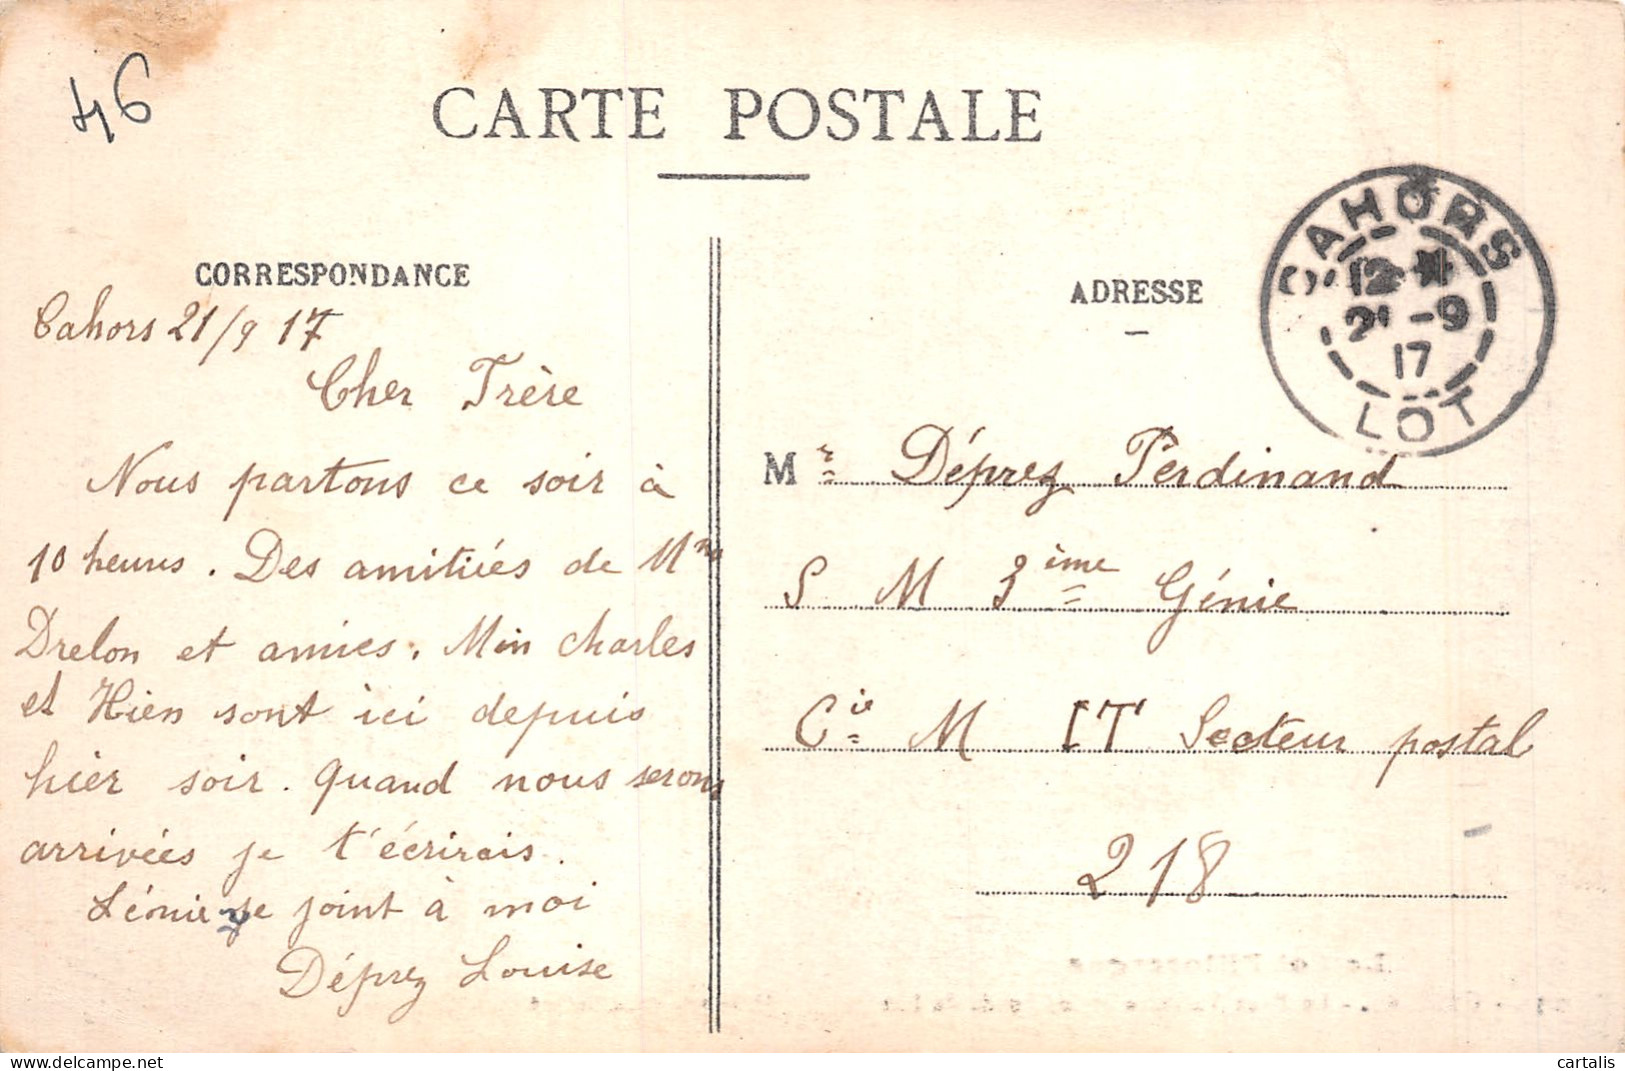 46
CARTE POSTALE
CORRESPONDANCE
Cahors 21/9 17
Cher Frère
Nous partons ce soir à
10 heures. Des amitiés de Mme
Drelon et amies. Min Charles
et Hien sont ici depuis
hier soir. Quand nous serons
arrivées je t'écrirais.
Léonie se joint à moi
Déprez Louise
ADRESSE
CAHORS
12
21 -9
17
LOT
Mr Déprez Ferdinand
S M 3ème Génie
Cie M Secteur postal
218
cartalis